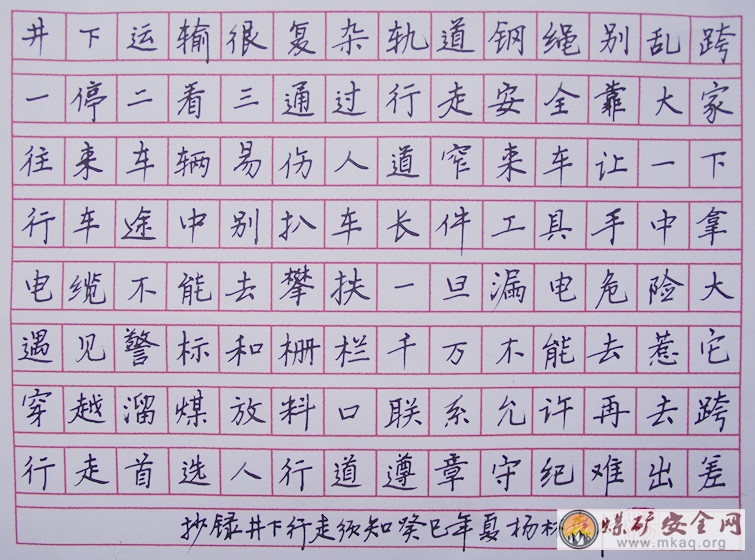 井下运输很复杂轨道钢绳别乱跨
一停二看三通过行走安全靠大家
往来车辆易伤人道窄来车让一下
行车途中别扒车长件工具手中拿
电缆不能去攀扶一旦漏电危险大
遇见警标和栅栏千万不能去惹它
穿越溜煤放料口联系允许再去跨
行走首选人行道遵章守纪难出差
抄录井下行走须知癸巳年夏杨
煤矿安全网
www.mkaq.org